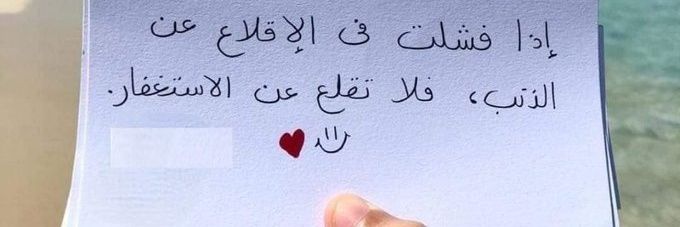 إذا فشلت في الإقلاع عن
الذنب، فلا تقلع عن الاستغفار.